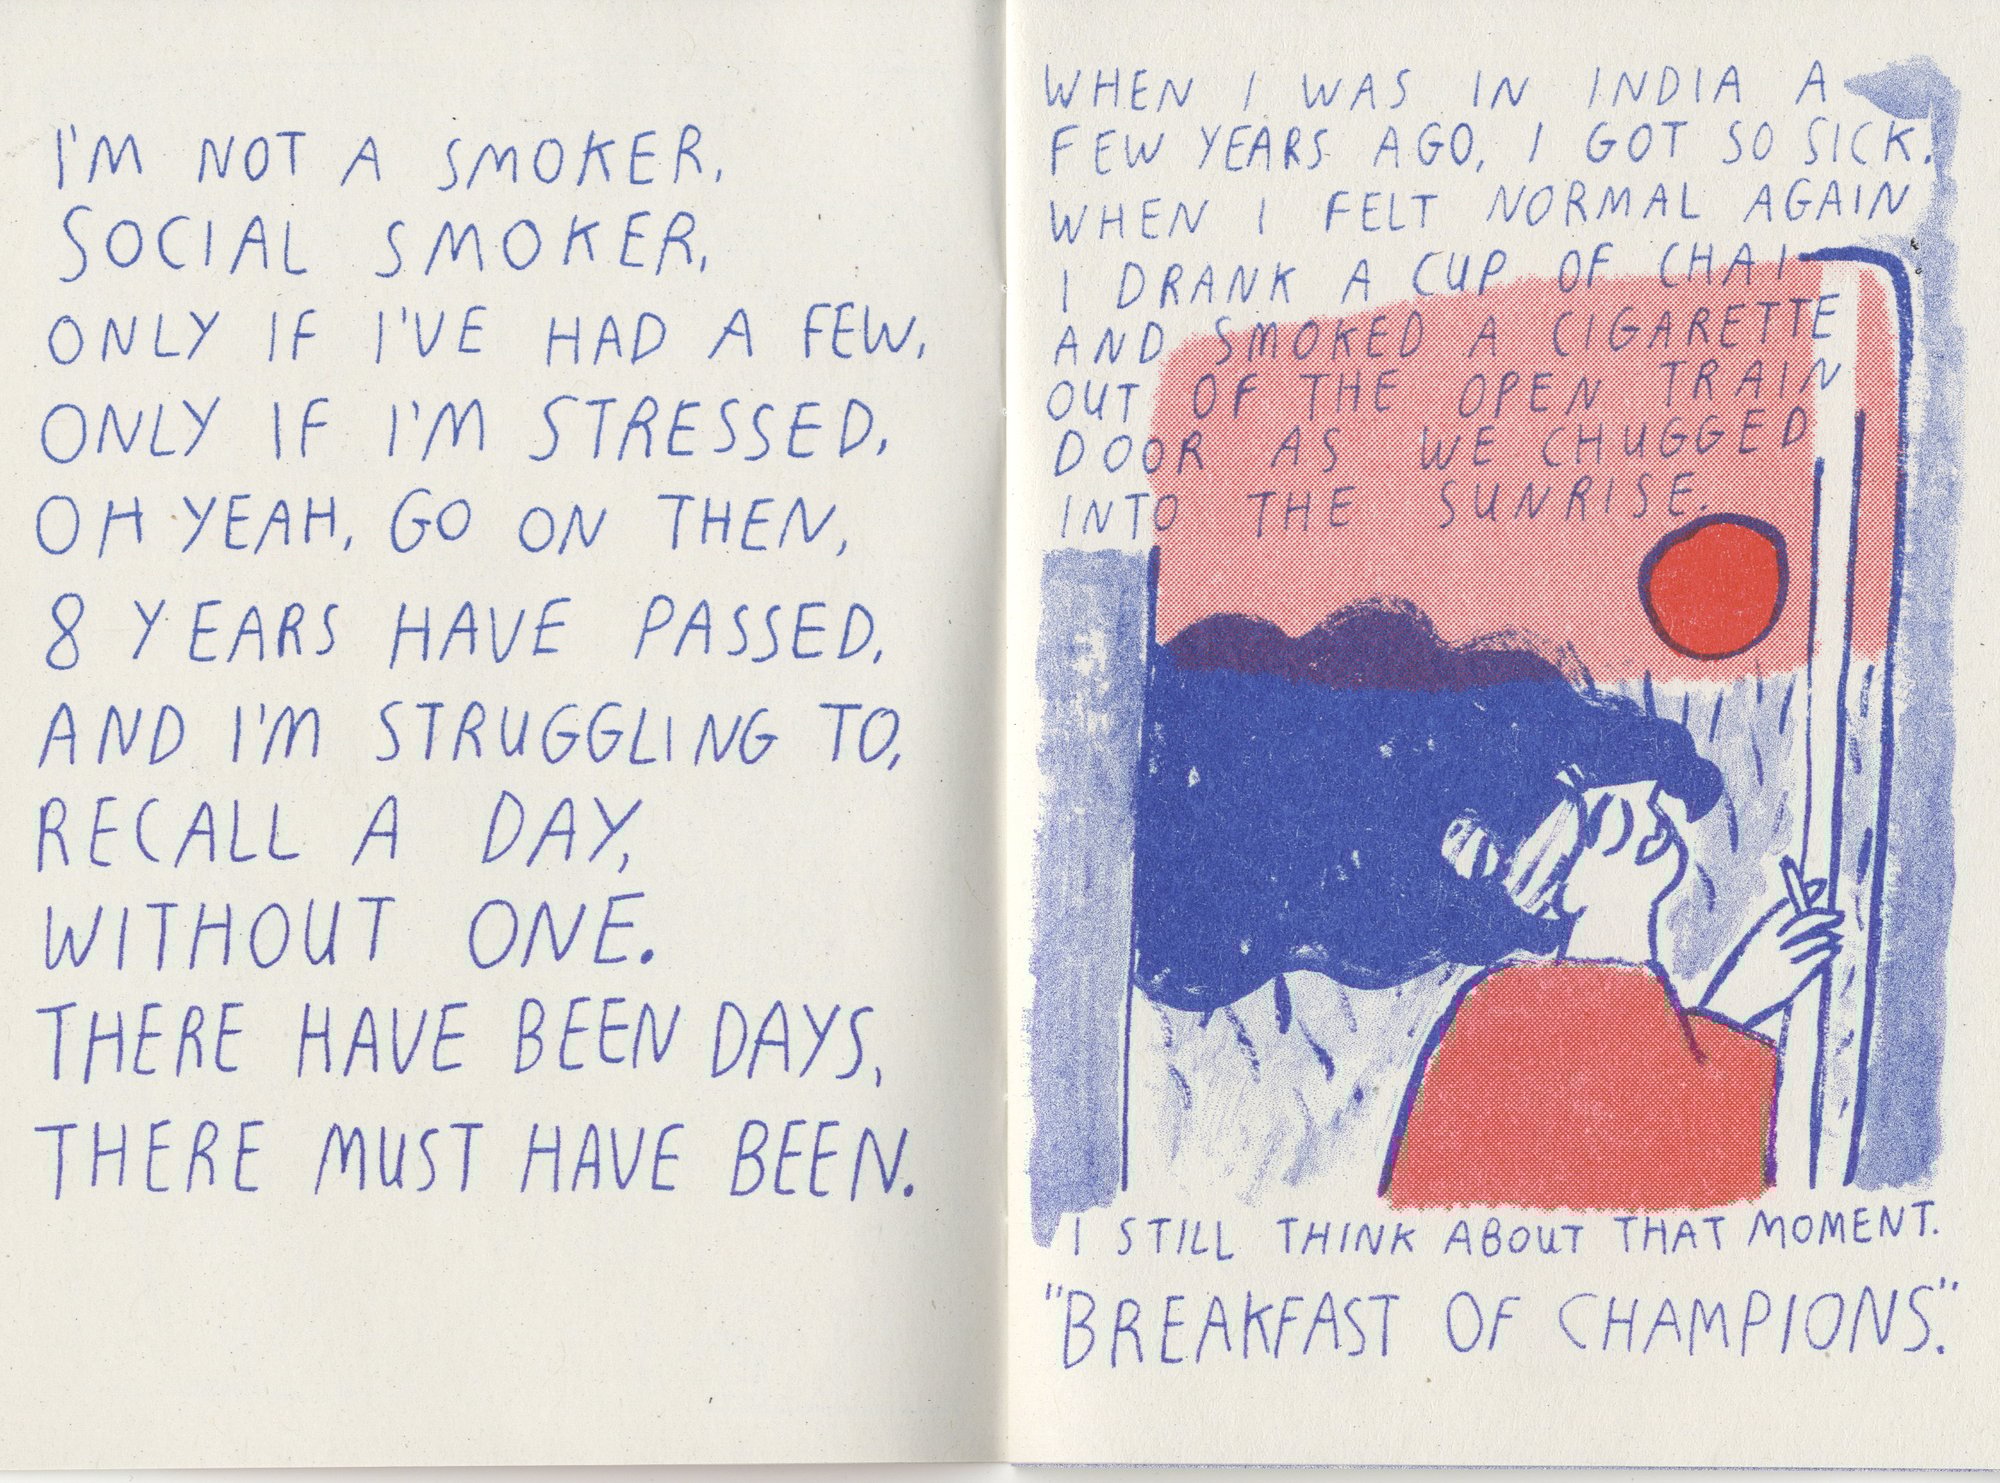 I'M NOT A SMOKER,
SOCIAL SMOKER,
ONLY IF I'VE HAD A FEW,
ONLY IF I'M STRESSED,
OH YEAH, GO ON THEN,
8 YEARS HAVE PASSED,
AND I'M STRUGGLING TO,
RECALL A DAY,
WITHOUT ONE.
THERE HAVE BEEN DAYS,
THERE MUST HAVE BEEN.
WHEN I WAS IN INDIA A
FEW YEARS AGO, I GOT SO SICK.
WHEN I FELT NORMAL AGAIN
I DRANK A CUP OF CHAI
AND SMOKED A CIGARETTE
OUT OF THE OPEN TRAIN
DOOR AS WE CHUGGED
INTO THE SUNRISE.
I STILL THINK ABOUT THAT MOMENT.
"BREAKFAST OF CHAMPIONS."